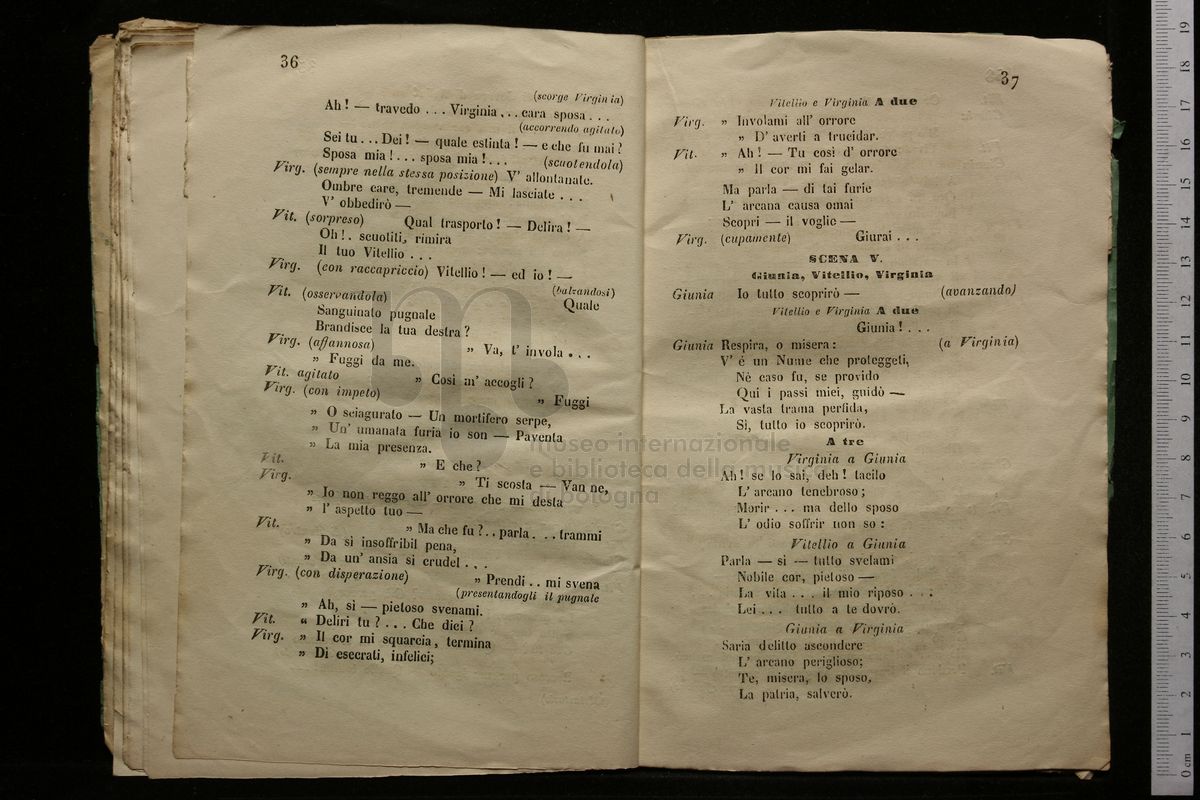 36
(scorge Virginia)
Ah! — travedo . . . Virginia . . . cara sposa . . .
(accorrendo agitato)
Sei tu . . . Dei! — quale estinta! — e che fu mai?
Sposa mia! . . . sposa mia! . . . (scuotendola)
Virg. (sempre nella stessa posizione) V' allontanate.
Ombre care, tremende — Mi lasciate . . .
V' obbedirò —
Vit. (sorpreso) Qual trasporto! — Delira! —
Oh!. scuotiti, rimira
Il tuo Vitellio . . .
Virg. (con raccapriccio) Vitellio! — ed io! —
(balzandosi)
Vit. (osservandola) Quale
Sanguinato pugnale
Brandisce la tua destra?
Virg. (affannosa) „ Va, t' invola . . .
„ Fuggi da me.
Vit. agitato „ Così m' accogli?
Virg. (con impeto) „ Fuggi
„ O sciagurato — Un mortifero serpe,
„ Un' umanata furia io son — Paventa
„ La mia presenza.
Vit. „ E che?
Virg. „ Ti scosta — Van ne,
„ Io non reggo all' orrore che mi desta
„ l' aspetto tuo —
Vit. „ Ma che fu?. . parla. . . trammi
„ Da sì insoffribil pena,
„ Da un' ansia sì crudel . . .
Virg. (con disperazione) „ Prendi . . mi svena
(presentandogli il pugnale
„ Ah, sì — pietoso svenami.
Vit. “ Deliri tu? . . . Che dici?
Virg. „ Il cor mi squarcia, termina
„ Di esecrati, infelici;
37
Vitellio e Virginia A due
Virg. „ Involami all' orrore
„ D' averti a trucidar.
Vit. „ Ah! — Tu così d' orrore
„ Il cor mi fai gelar.
Ma parla — di tai furie
L' arcana causa omai
Scopri — il voglio —
Virg. (cupamente) Giurai . . .
SCENA V.
Giunia, Vitellio, Virginia
Giunia Io tutto scoprirò — (avanzando)
Vitellio e Virginia A due
Giunia! . . .
Giunia Respira, o misera: (a Virginia)
V' è un Nume che proteggeti,
Nè caso fu, se provido
Qui i passi miei, guidò —
La vasta trama perfida,
Sì, tutto io scoprirò.
A tre
Virginia a Giunia
Ah! se lo sai, deh! tacilo
L' arcano tenebroso;
Morir . . . ma dello sposo
L' odio soffrir non so:
Vitellio a Giunia
Parla — sì — tutto svelami
Nobile cor, pietoso —
La vita . . . il mio riposo . . .
Lei . . . tutto a te dovrò.
Giunia a Virginia
Saria delitto ascondere
L' arcano periglioso;
Te, misera, lo sposo,
La patria, salverò.
museo internazionale
e biblioteca della musica
di bologna
0 cm 1 2 3 4 5 6 7 8 9 10 11 12 13 14 15 16 17 18 19